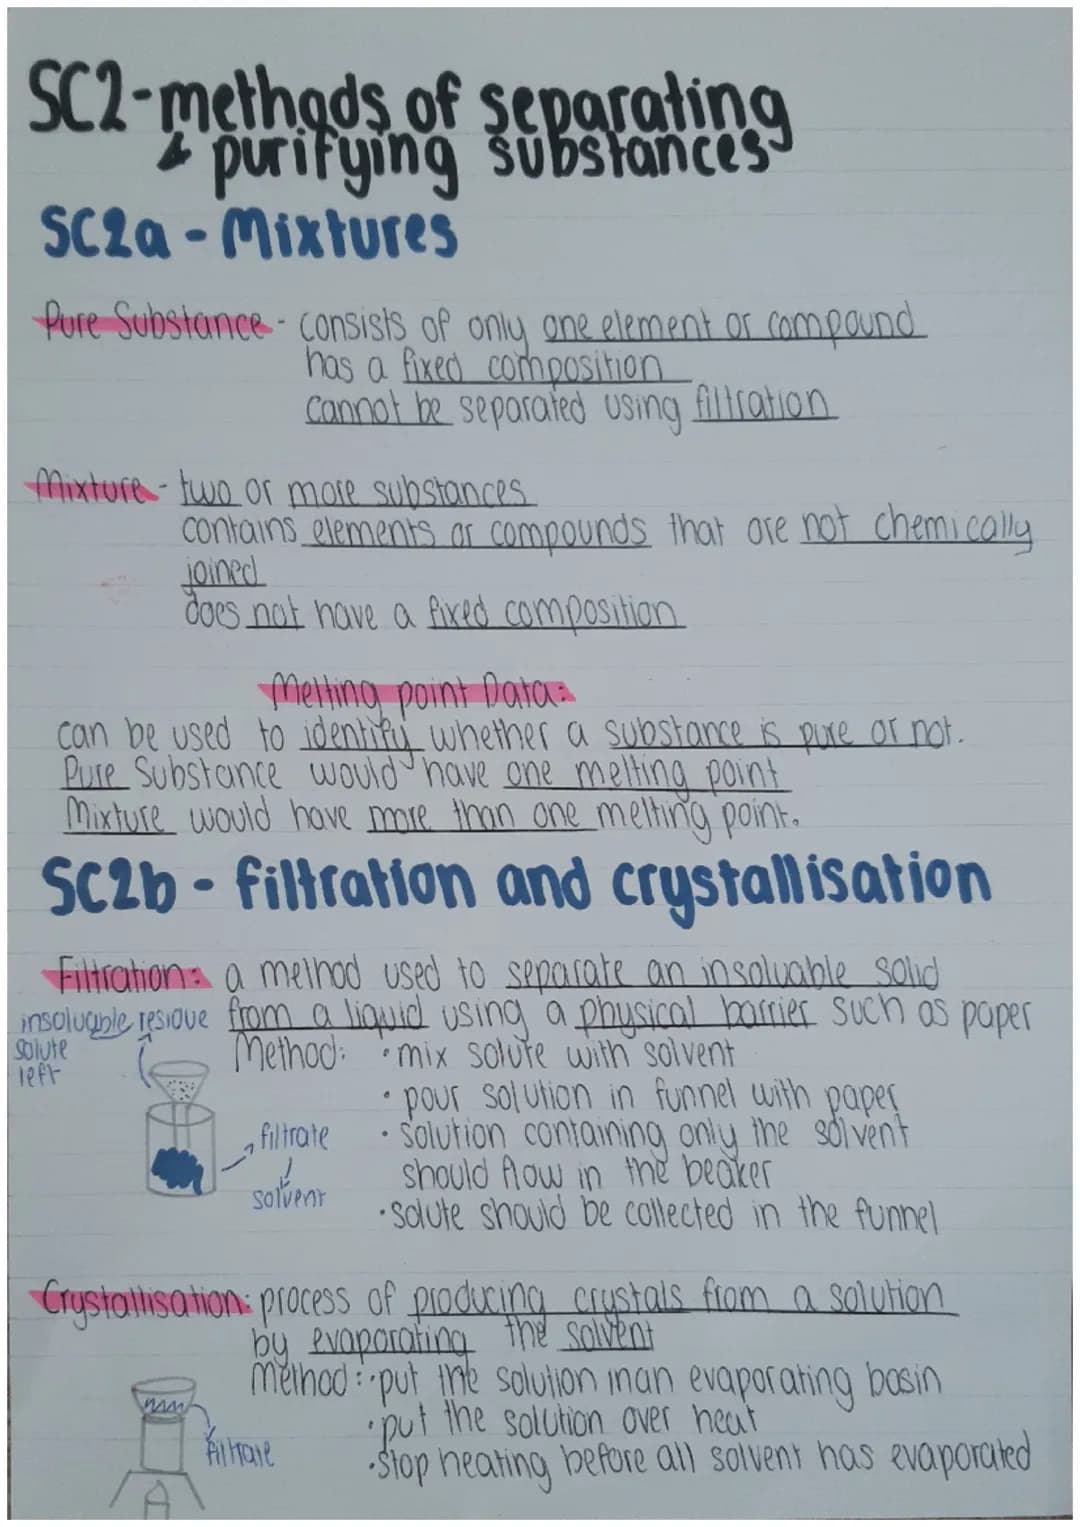 SC2-methods of separating
& purifying substances
SC2a - Mixtures
Pure Substance - consists of only one element or compound
has a fixed composition
cannot be separated using filtration
Mixture - two or more substances
contains elements or compounds that are not chemically
joined
does not have a fixed composition
Melting point Data:
can be used to identify whether a substance is pure or not.
Pure Substance would have one melting point
Mixture would have more than one melting point.
SC2b - filtration and crystallisation
Filtration: a method used to separate an insoluable solid
from a liquid using a physical barrier such as paper
insoluable residue
solute
left
Method: • mix solute with solvent
• pour solution in funnel with paper
• solution containing only the solvent
should flow in the beaker
• solute should be collected in the funnel
filtrate
solvent
Crystallisation: process of producing crystals from a solution
by evaporating the solvent
Method: • put the solution in an evaporating basin
• put the solution over heat
• stop heating before all solvent has evaporated
filtrate